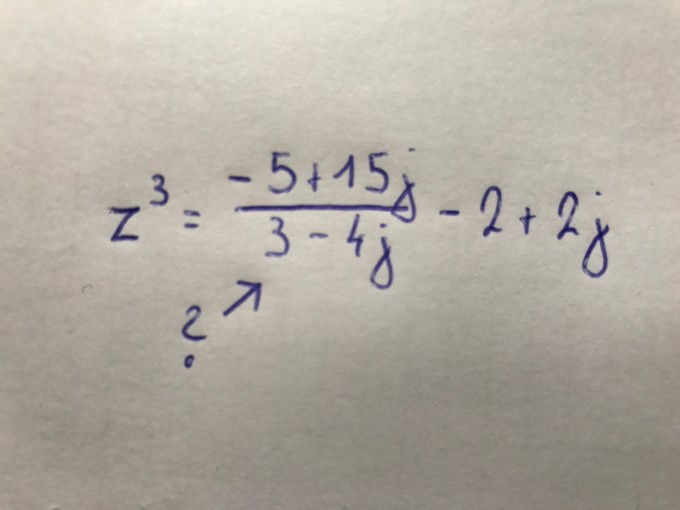 z³ = (-5+15j)/(3-4j) - 2 + 2j
? ↗